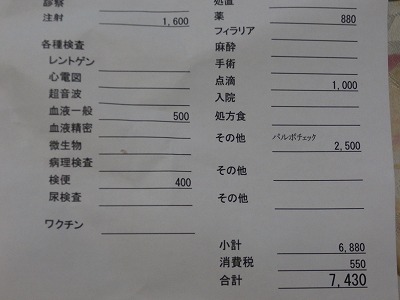 診察
注射 1,600
各種検査
レントゲン
心電図
超音波
血液一般 500
血液精密
微生物
病理検査
検便 400
尿検査
ワクチン
処置
薬 880
フィラリア
麻酔
手術
点滴 1,000
入院
処方食
その他 パルボチェック
2,500
その他
その他
小計 6,880
消費税 550
合計 7,430